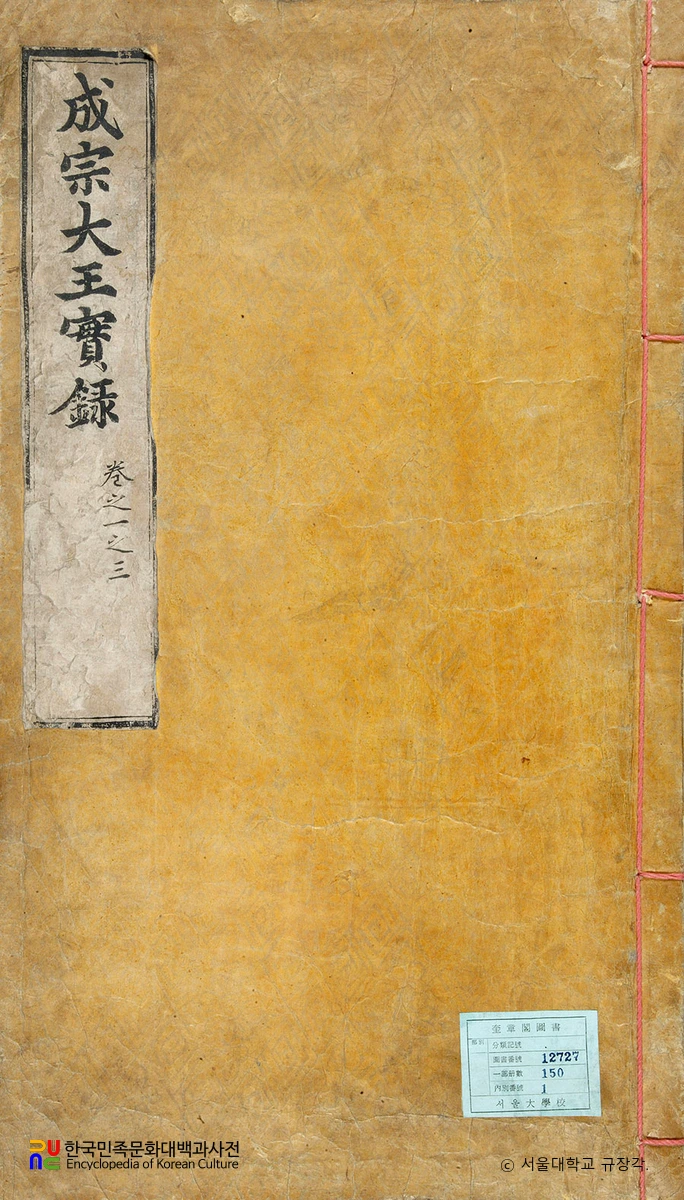 成宗大王實録
卷之一之三
奎章閣圖書
分類記號
圖書番號 12727
一部冊數 150
內別番號 1
서울大學校
한국민족문화대백과사전
Encyclopedia of Korean Culture
© 서울대학교 규장각.